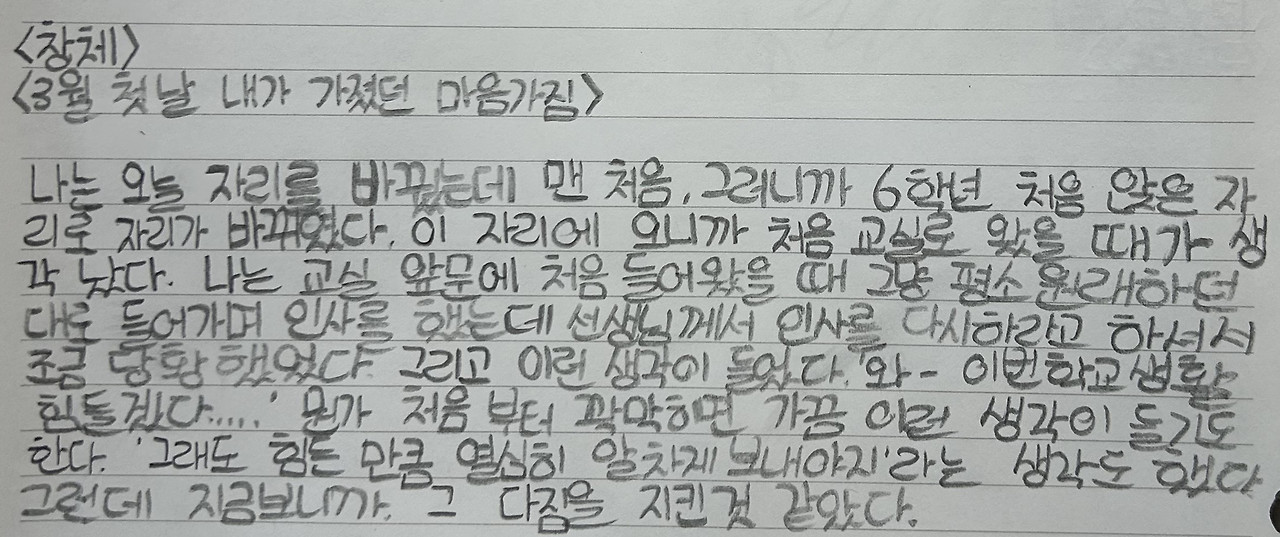 <창체>
<3월 첫날 내가 가졌던 마음가짐>
나는 오늘 자리를 바꿨는데 맨 처음, 그러니까 6학년 처음 앉은 자
리로 자리가 바뀌었다. 이 자리에 오니까 처음 교실로 왔을 때가 생
각 났다. 나는 교실 앞문에 처음 들어왔을 때 그냥 평소 원래하던
대로 들어가며 인사를 했는데 선생님께서 인사를 다시하라고 하셔서
조금 당황했었다. 그리고 이런 생각이 들었다. '와- 이번학교생활
힘들겠다.....' 뭔가 처음 부터 꽉막히면 가끔 이런 생각이 들기도
한다. '그래도 힘든 만큼 열심히 알차게 보내야지'라는 생각도 했다
그런데 지금보니까. 그 다짐을 지킨것 같았다.